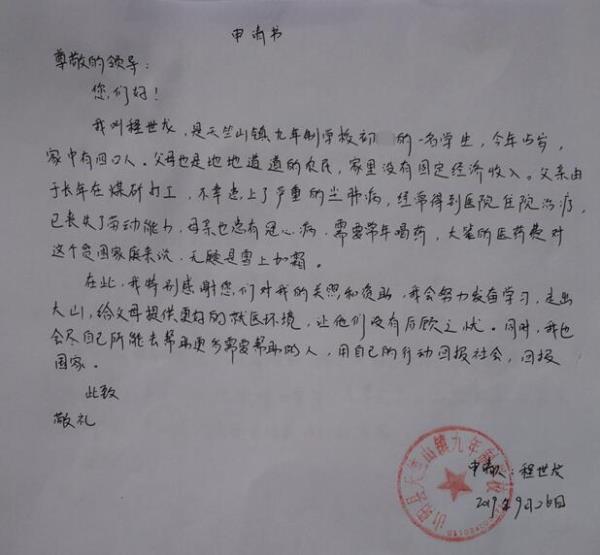 申请书
尊敬的领导:
您们好!
我叫程世龙,是天竺山镇九年制学校初 的一名学生,今年15岁,
家中有四口人。父母也是地地道道的农民,家里没有固定经济收入。父亲由
于长年在煤矿打工,不幸患上了严重的尘肺病,经常得到医院住院治疗,
已丧失了劳动能力,母亲也患有冠心病,需要常年喝药,大笔的医药费对
这个贫困家庭来说,无疑是雪上加霜。
在此,我特别感谢您们对我的关照和资助,我会努力发奋学习,走出
大山,给父母提供更好的就医环境,让他们没有后顾之忧。同时,我也
会尽自己所能去帮助更多需要帮助的人,用自己的行动回报社会,回报
国家。
此致
敬礼
申请人:程世龙
2019年9月26日
山阳县天竺山镇九年制学校